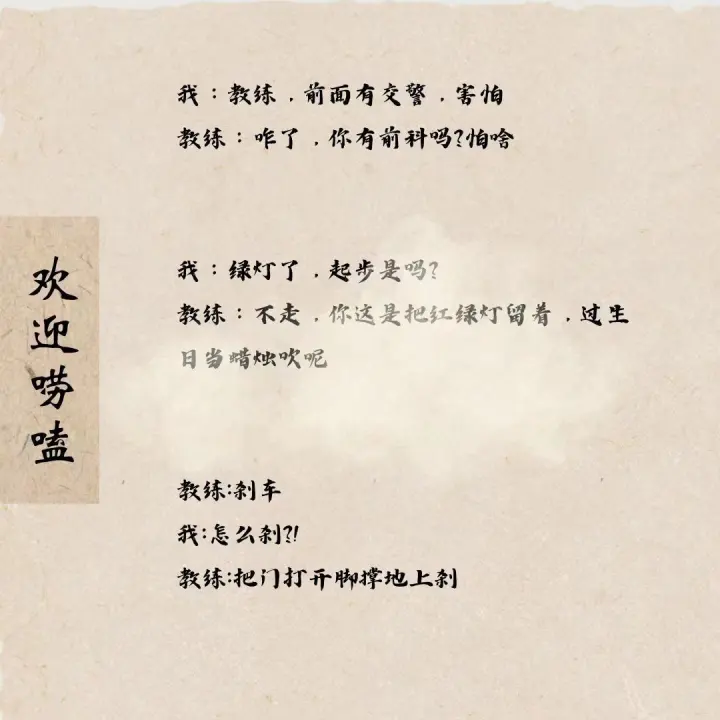 我：教练，前面有交警，害怕
教练：咋了，你有前科吗?怕啥
我：绿灯了，起步是吗?
教练：不走，你这是把红绿灯留着，过生
日当蜡烛吹呢
教练:刹车
我:怎么刹?!
教练:把门打开脚撑地上刹
欢迎唠嗑